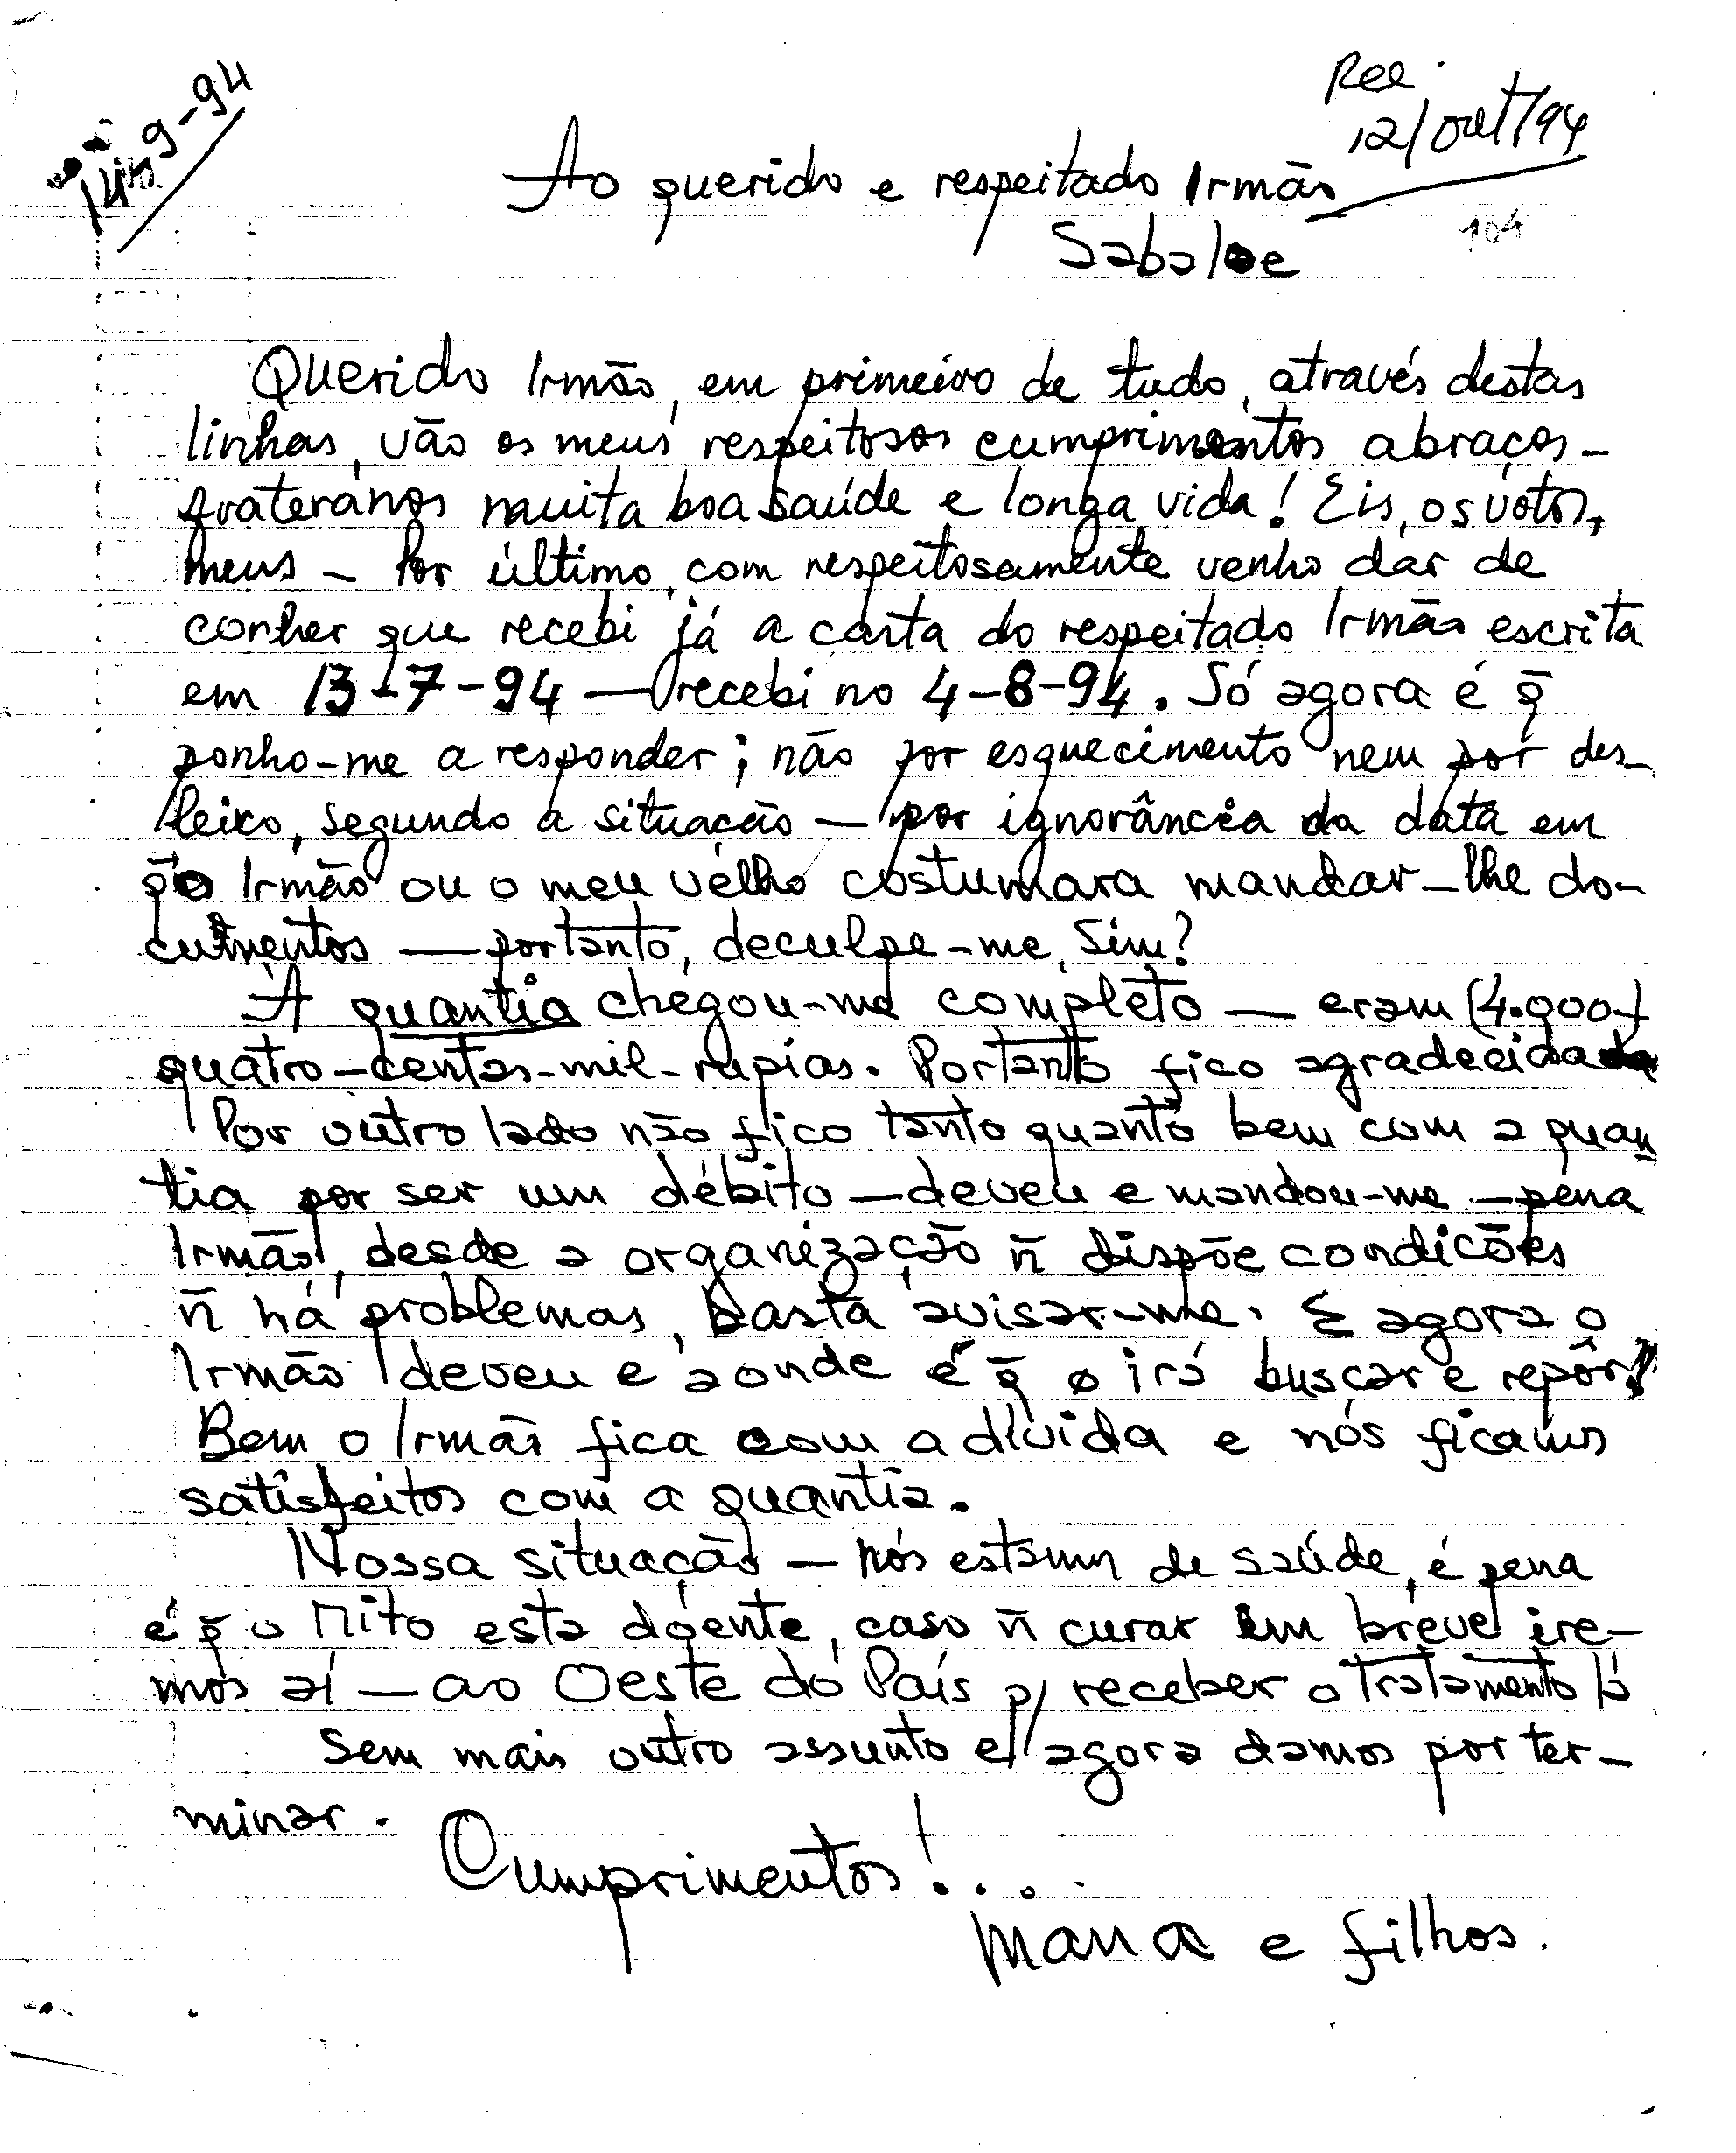 14-9-94
Rec.
12/out/94
Ao querido e respeitado Irmão
104
Sabalae
Querido Irmão, em primeiro de tudo, através destas
linhas, vão os meus respeitosos cumprimentos abraços-
fraterános muita boa saúde e longa vida! Eis, os votos,
meus - Por último, com respeitosamente venho dar de
conher que recebi já a carta do respeitado Irmão escrita
em 13-7-94 — recebi no 4-8-94. Só agora é q̄
ponho-me a responder; não por esquecimento nem por des-
leixo, segundo a situação — por ignorância da data em
q̄ o Irmão ou o meu velho costumara mandar-lhe do-
cumentos — portanto, deculpe-me, Sim?
A quantia chegou-me completo — eram (4.000)
quatro-centas-mil-rupias. Portanto fico agradecida
Por outro lado não fico tanto quanto bem com a quan
tia por ser um débito — deveu e mandou-me — pena
Irmão, desde a organização n̄ dispõe condições
n̄ há problemas, basta avisar-me. E agora o
Irmão deveu e aonde é q̄ o irá buscar e repôr?
Bem o Irmão fica com a dívida e nós ficamos
satisfeitos com a quantia.
Nossa situação — nós estamos de saúde, é pena
é q̄ o Mito esta doente, caso n̄ curar em breve ire-
mos aí — ao Oeste do País p/ receber o tratamento lá
Sem mais outro assunto e agora damos por ter-
minar.
Cumprimentos!...
Mana e filhos.